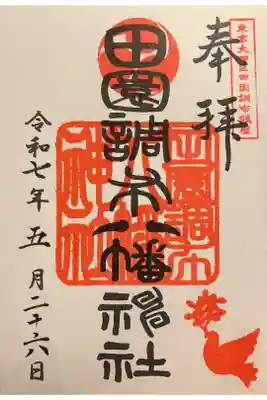 東京大田区田園調布鎮座
奉拝
田園調布八幡神社
田園調布八幡神社
令和七年五月二十六日